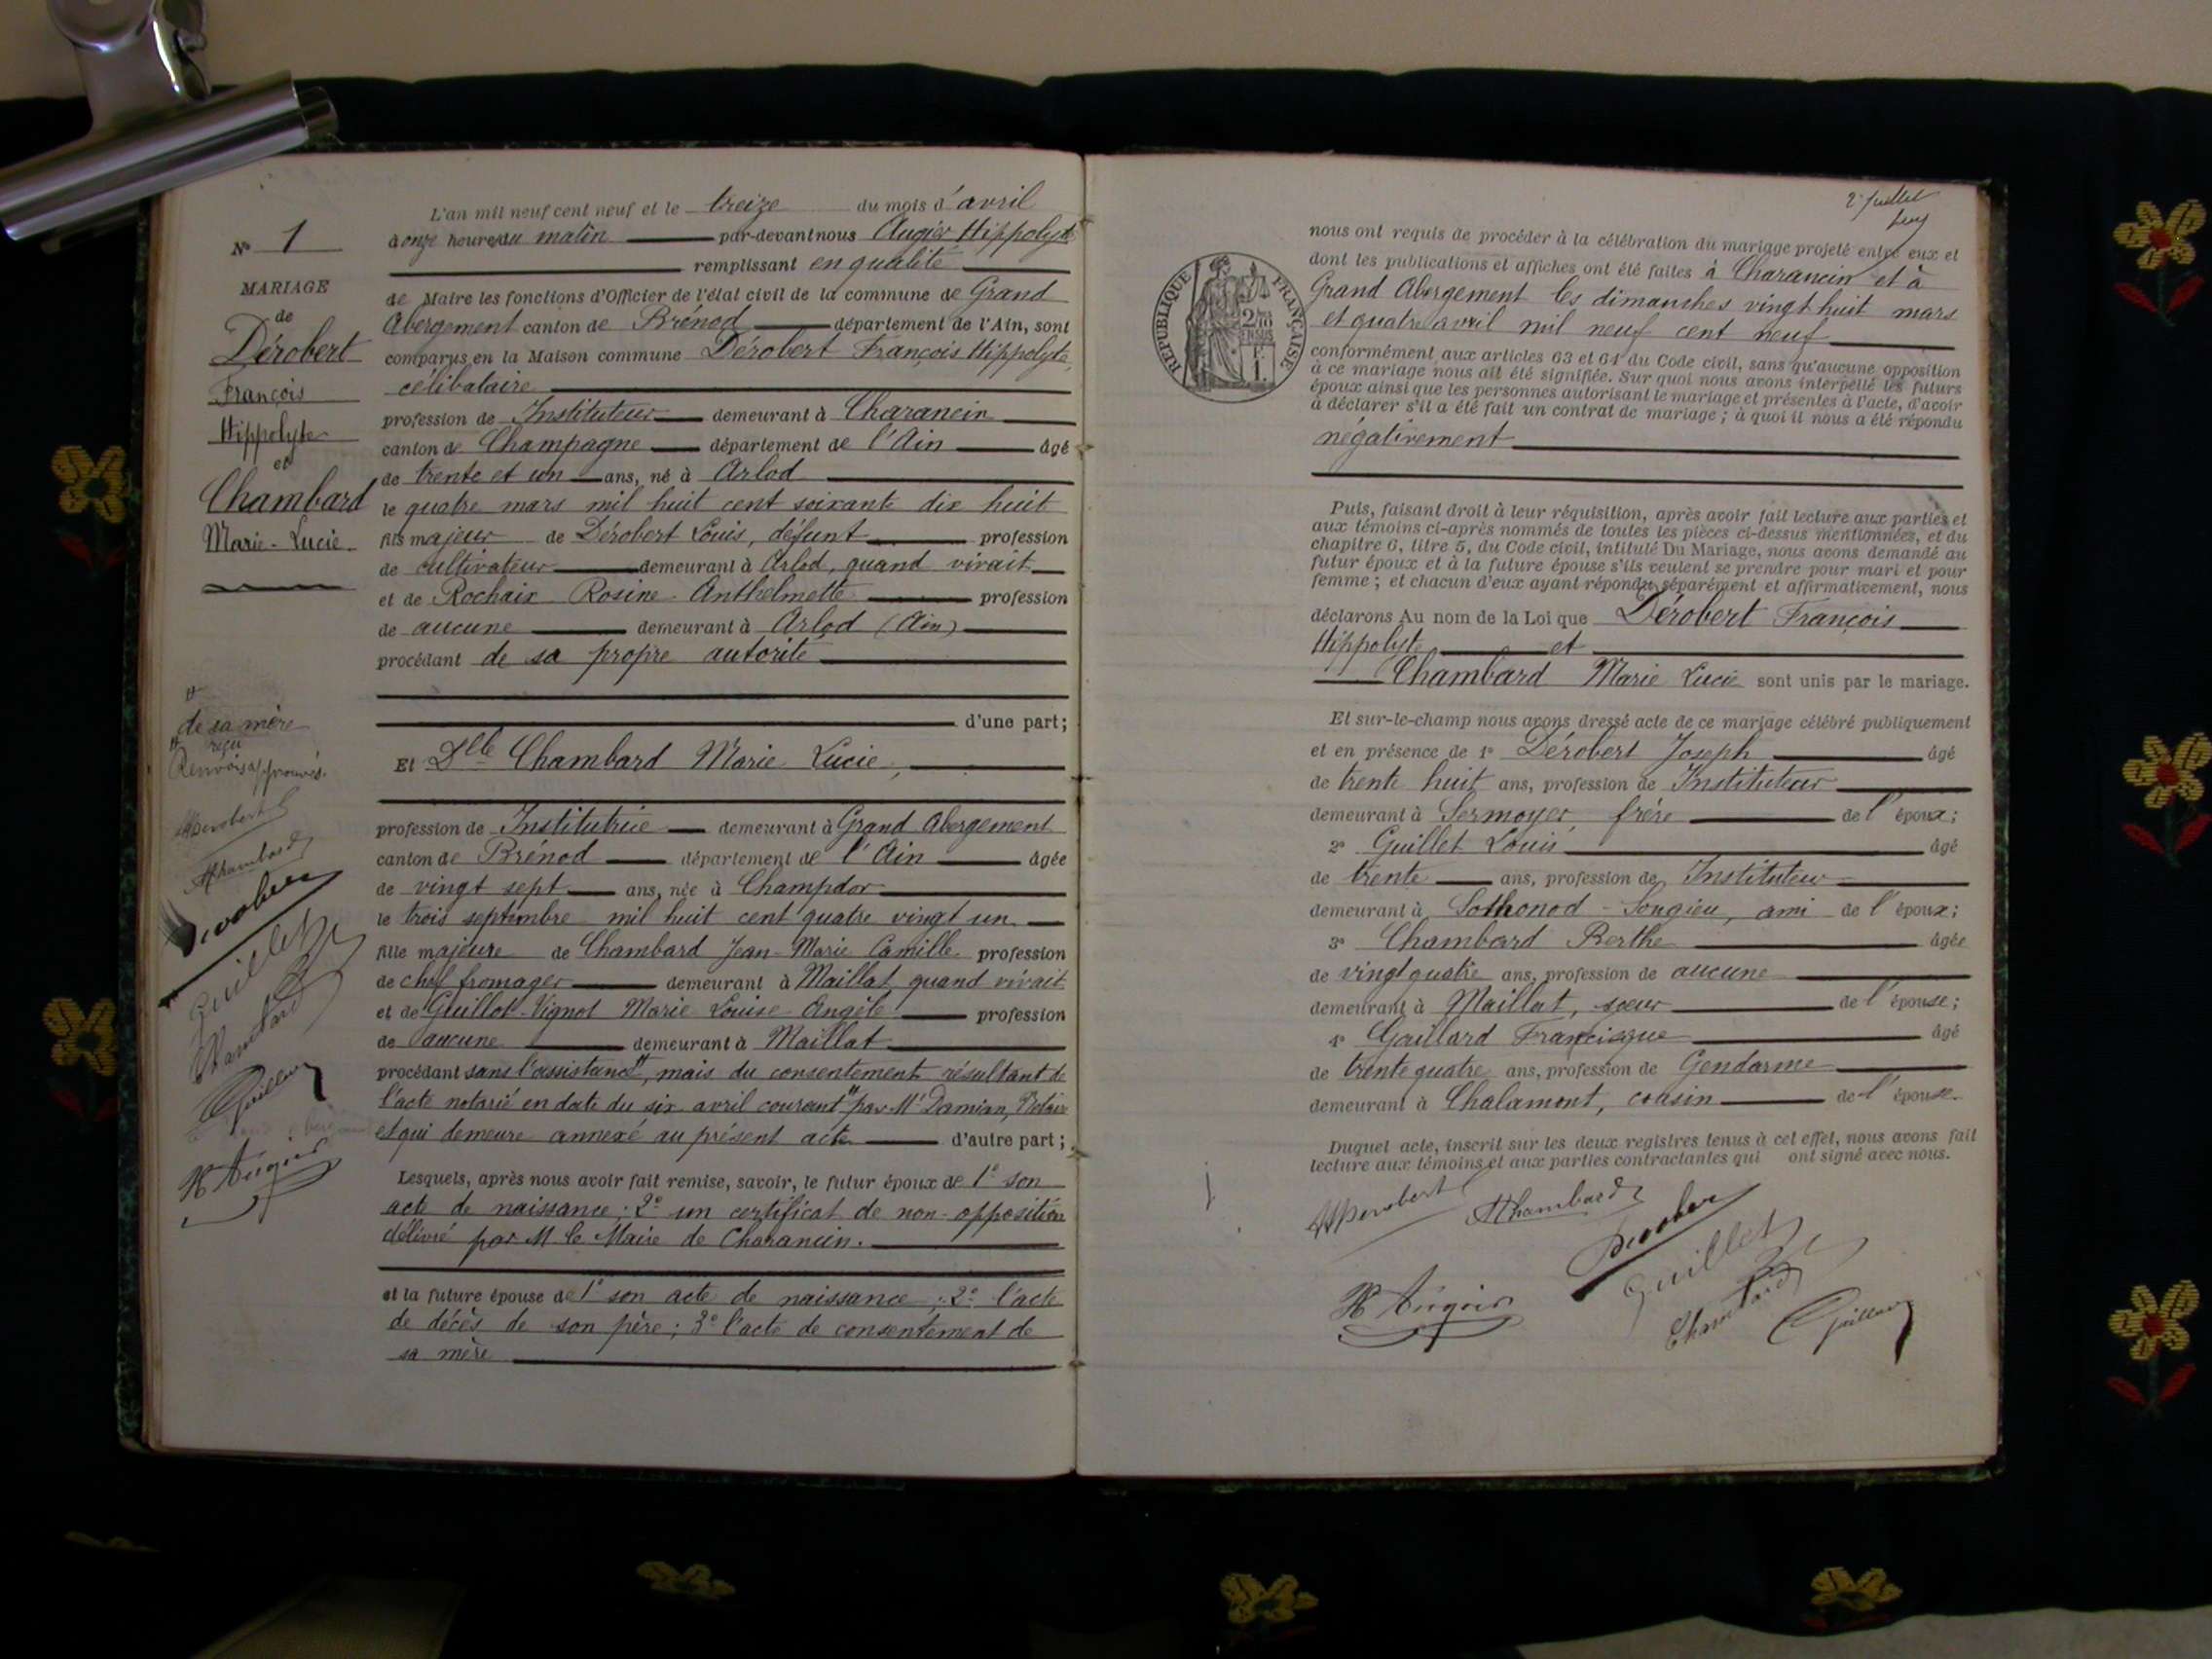 N° 1
MARIAGE
de
Dérobert
François
Hippolyte
et
Chambard
Marie-Lucie
de sa mère
reçu
Renvois approuvés.
HDerobert
Chambard
Derobert
Guillet
Chambard
Gaillard
H Augier
L'an mil neuf cent neuf et le treize du mois d'avril
à onze heures du matin par-devant nous Augier Hippolyte
remplissant en qualité
de Maire les fonctions d'Officier de l'état civil de la commune de Grand
Abergement canton de Brénod département de l'Ain, sont
comparus en la Maison commune Dérobert François Hippolyte,
célibataire
profession de Instituteur demeurant à Charancin
canton de Champagne département de l'Ain âgé
de trente et un ans, né à Arlod
le quatre mars mil huit cent soixante dix huit
fils majeur de Dérobert Louis, défunt profession
de cultivateur demeurant à Arlod, quand vivait
et de Rochaix Rosine Anthelmette profession
de aucune demeurant à Arlod (Ain)
procédant de sa propre autorité
d'une part;
Et Dlle Chambard Marie Lucie,
profession de Institutrice demeurant à Grand Abergement
canton de Brénod département de l'Ain âgée
de vingt sept ans, née à Champdor
le trois septembre mil huit cent quatre vingt un
fille majeure de Chambard Jean-Marie Camille profession
de chef fromager demeurant à Maillat, quand vivait
et de Guillot-Vignot Marie Louise Angèle profession
de aucune demeurant à Maillat
procédant sans l'assistance, mais du consentement résultant de
l'acte notarié en date du six avril courant par Me Damian, Notaire
et qui demeure annexé au présent acte d'autre part;
Lesquels, après nous avoir fait remise, savoir, le futur époux de 1° son
acte de naissance; 2° un certificat de non-opposition
délivré par M le Maire de Charancin.
et la future épouse de 1° son acte de naissance; 2° l'acte
de décès de son père; 3° l'acte de consentement de
sa mère
2e Juillet
RÉPUBLIQUE FRANÇAISE
nous ont requis de procéder à la célébration du mariage projeté entre eux et
dont les publications et affiches ont été faites à Charancin et à
Grand Abergement les dimanches vingt huit mars
et quatre avril mil neuf cent neuf
conformément aux articles 63 et 64 du Code civil, sans qu'aucune opposition
à ce mariage nous ait été signifiée. Sur quoi nous avons interpellé les futurs
époux ainsi que les personnes autorisant le mariage et présentes à l'acte, d'avoir
à déclarer s'il a été fait un contrat de mariage; à quoi il nous a été répondu
négativement
Puis, faisant droit à leur réquisition, après avoir fait lecture aux parties et
aux témoins ci-après nommés de toutes les pièces ci-dessus mentionnées, et du
chapitre 6, titre 5, du Code civil, intitulé Du Mariage, nous avons demandé au
futur époux et à la future épouse s'ils veulent se prendre pour mari et pour
femme; et chacun d'eux ayant répondu séparément et affirmativement, nous
déclarons Au nom de la Loi que Dérobert François
Hippolyte et
Chambard Marie Lucie sont unis par le mariage.
Et sur-le-champ nous avons dressé acte de ce mariage célébré publiquement
et en présence de 1° Dérobert Joseph âgé
de trente huit ans, profession de Instituteur
demeurant à Sermoyer, frère de l'époux;
2° Guillet Louis âgé
de trente ans, profession de Instituteur
demeurant à Sothonod - Songieu, ami de l'époux;
3° Chambard Berthe âgée
de vingt quatre ans, profession de aucune
demeurant à Maillat, sœur de l'épouse;
4° Gaillard Francisque âgé
de trente quatre ans, profession de Gendarme
demeurant à Chalamont, cousin de l'épouse.
Duquel acte, inscrit sur les deux registres tenus à cet effet, nous avons fait
lecture aux témoins et aux parties contractantes qui ont signé avec nous.
HDerobert
Chambard
Derobert
Guillet
H Augier
Chambard
Gaillard